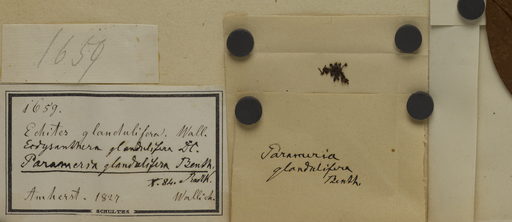 1659
1659.
Echites glandulifera. Wall.
Ecdysanthera glandulifera DC.
Parameria glandulifera Benth.
Amherst. 1827. Wallich.
SCHULTES
Parameria
glandulifera
Benth.